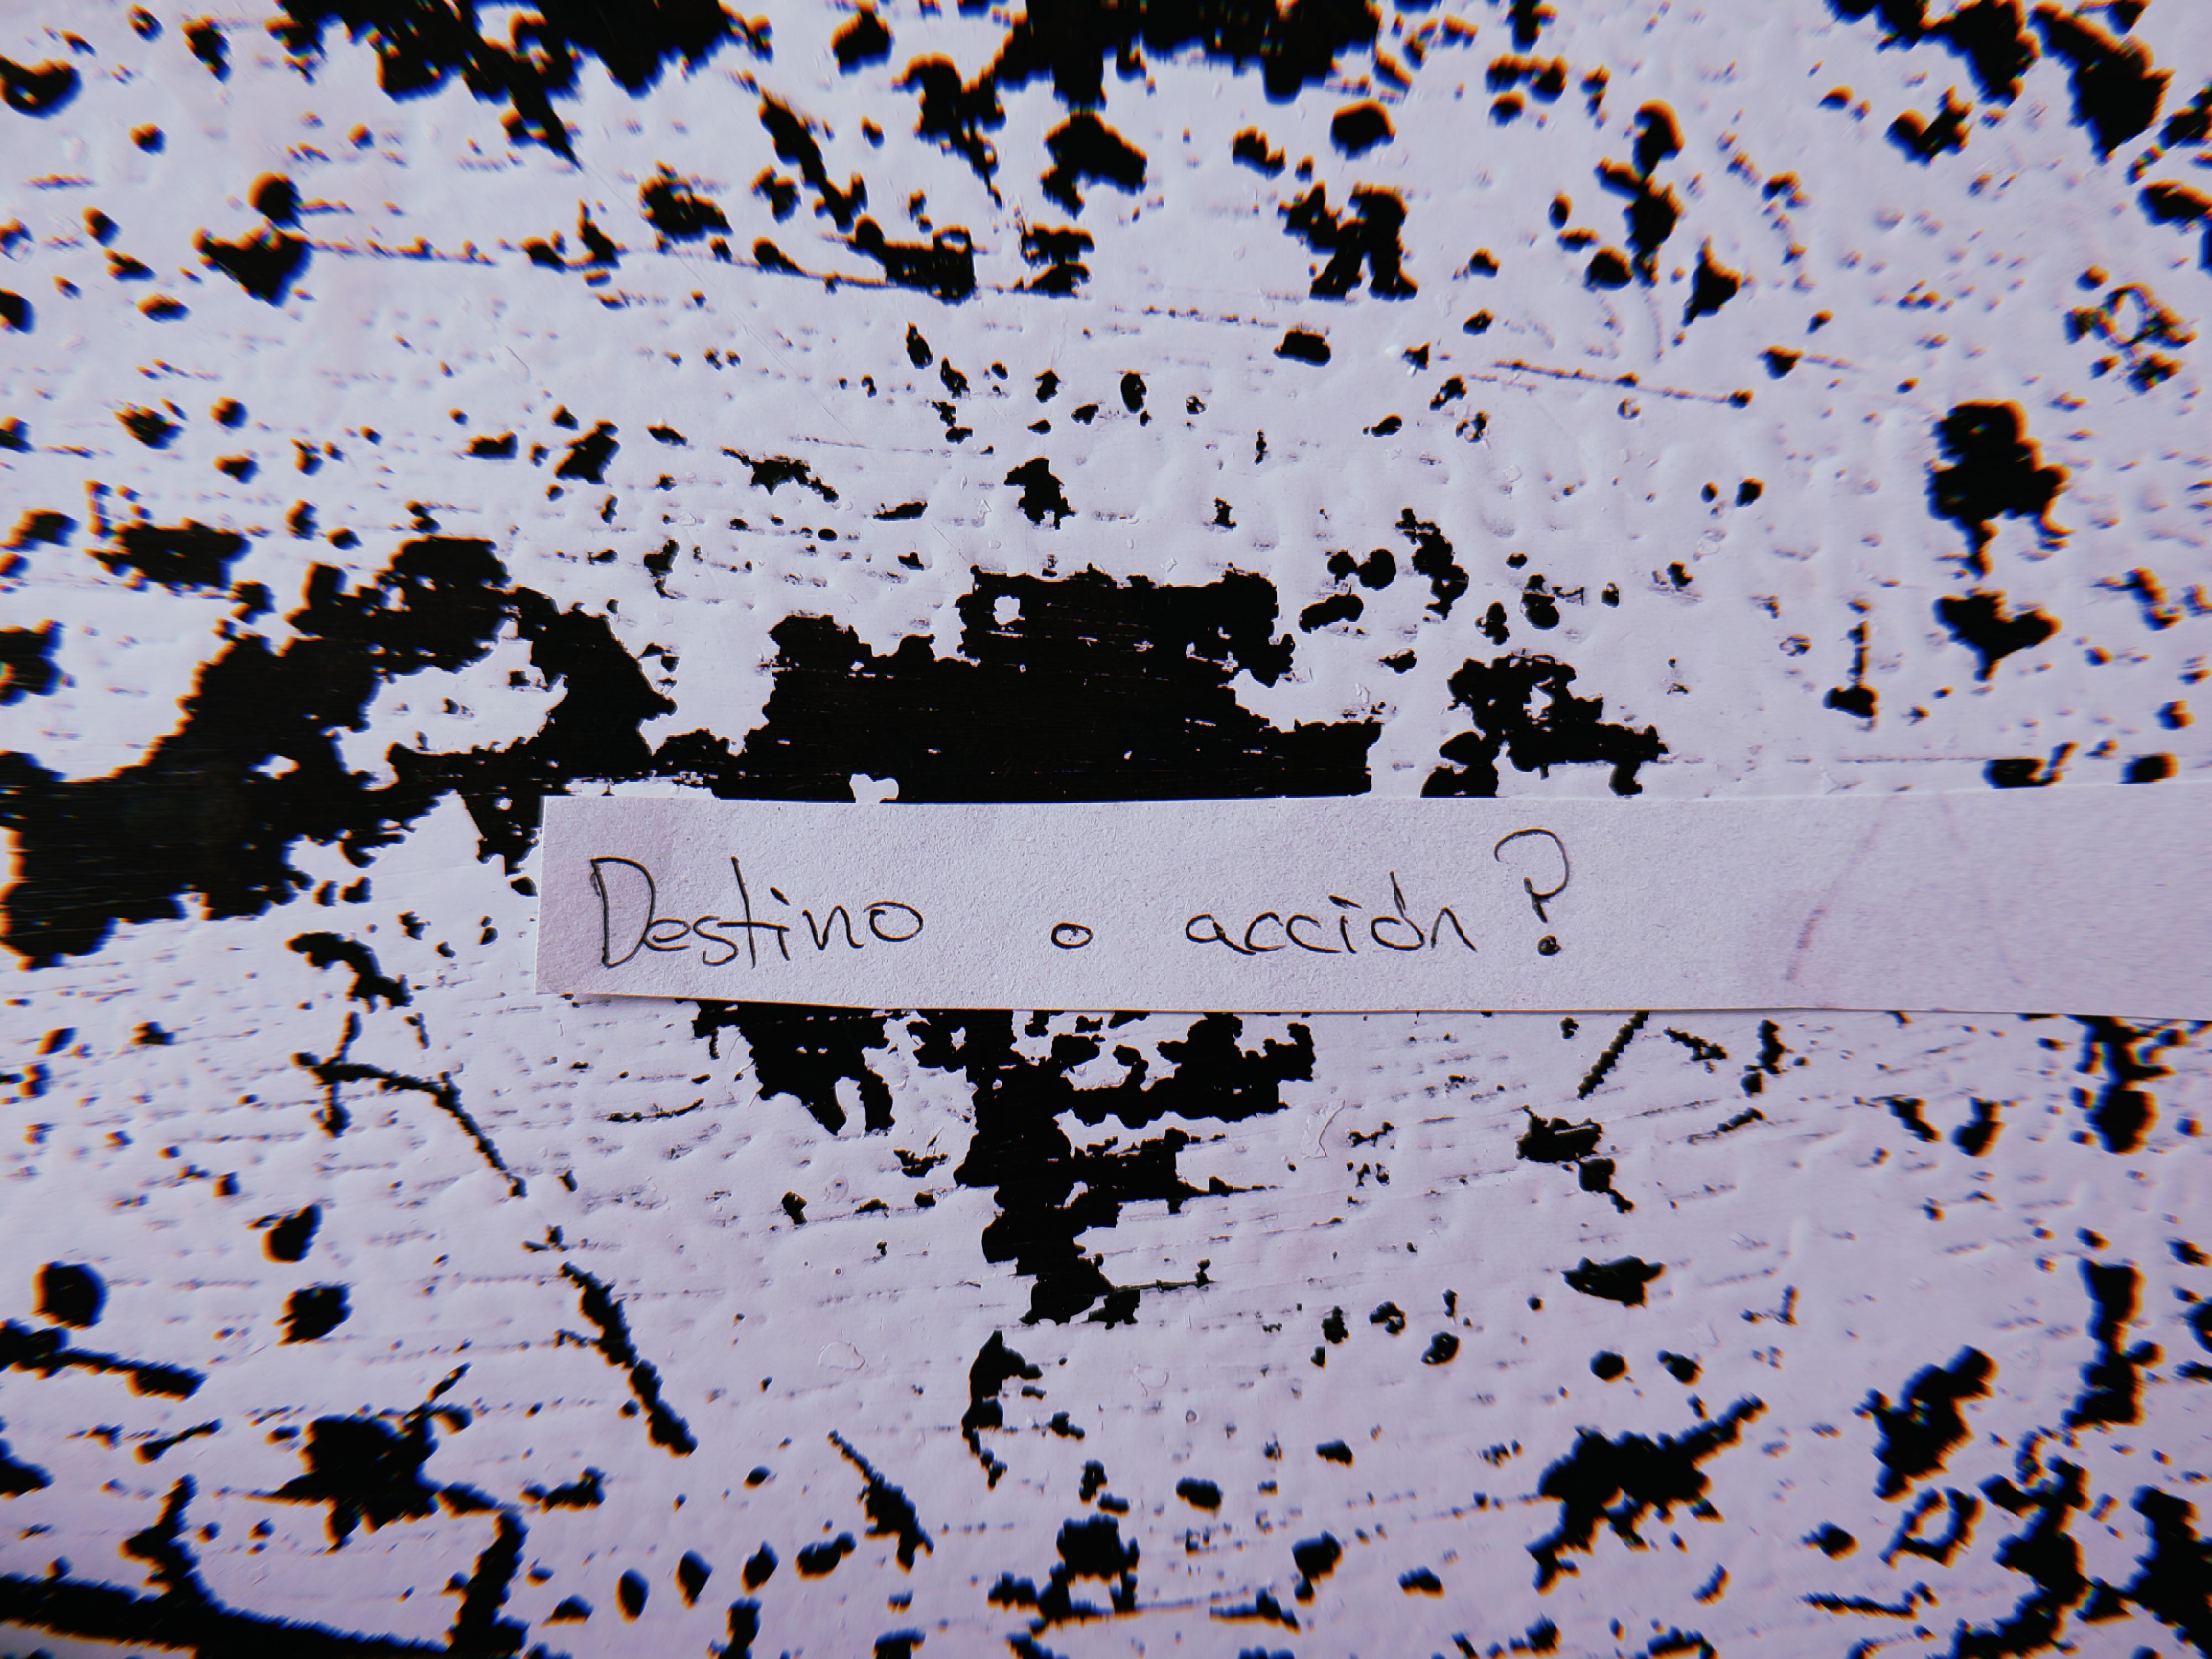 Destino o acción?